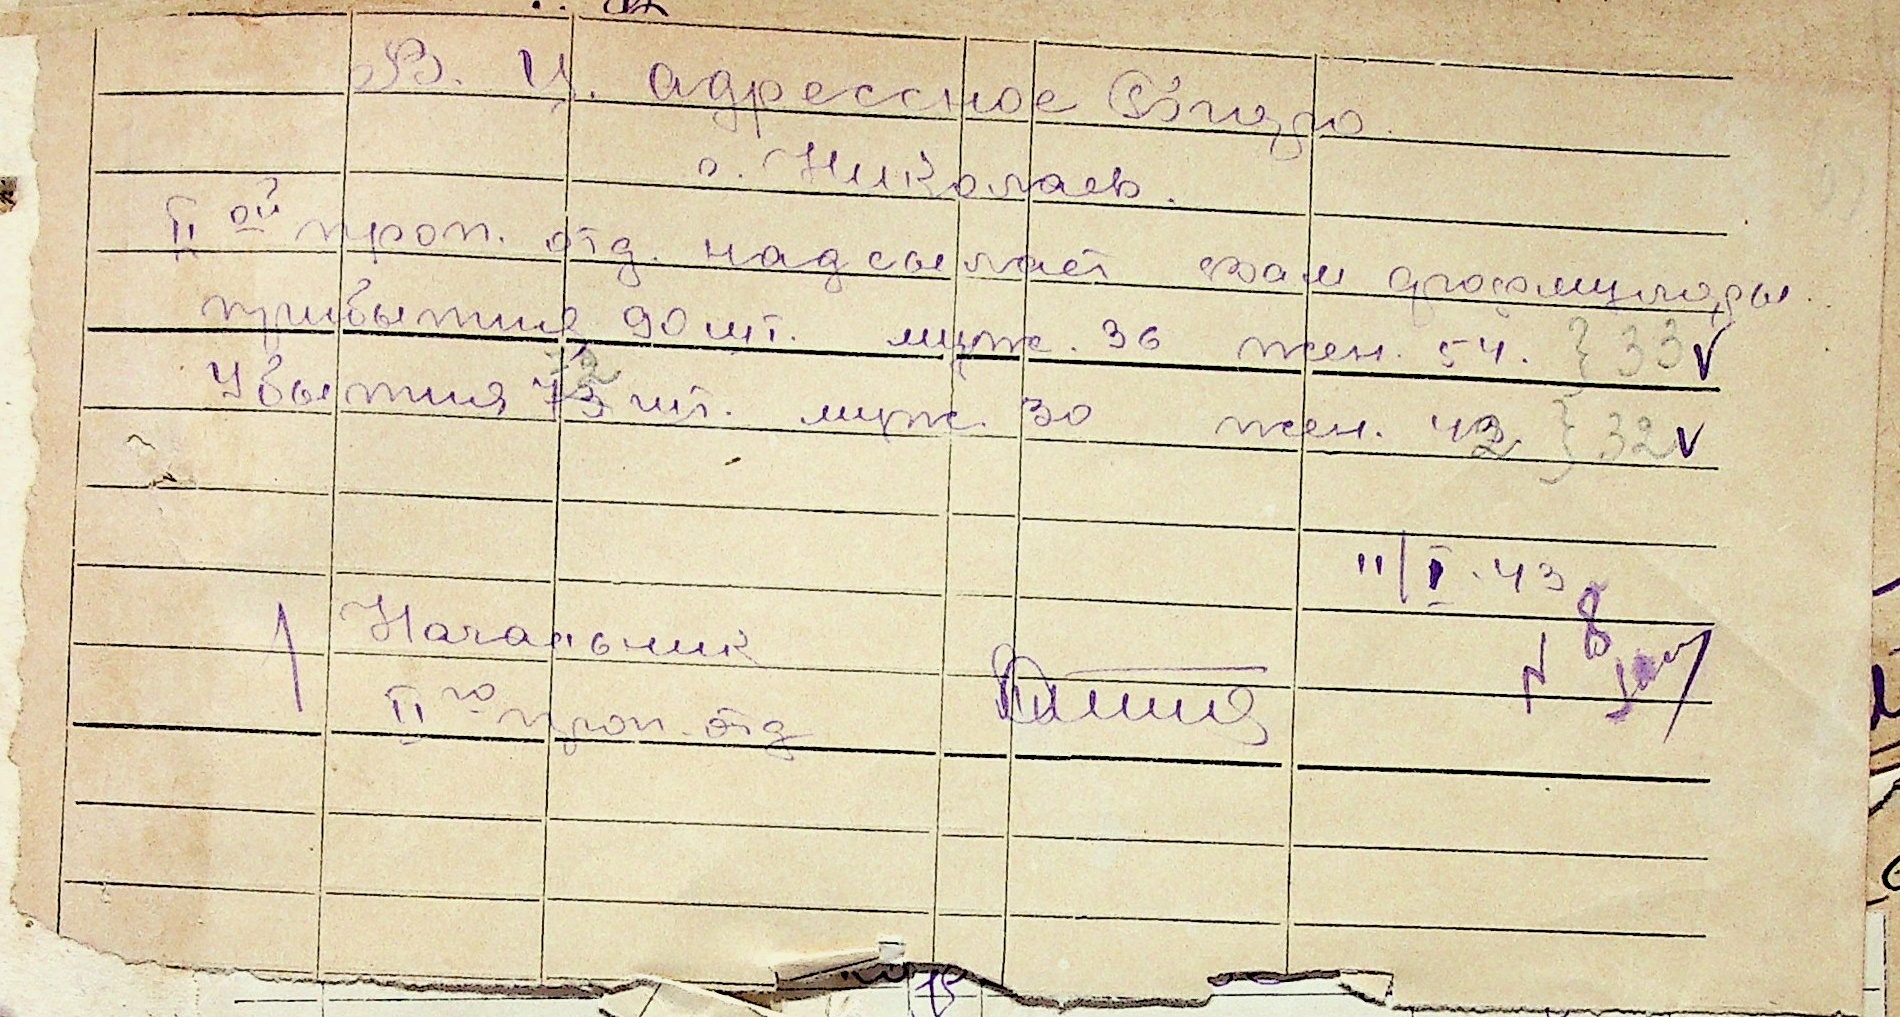 В. Ц. адрессное Бюро.
г. Николаев.
II ой проп. отд. надсылает вам
прибытия 90 шт. муж. 36 жен. 54. } 33 V
Убытия 72 шт. муж. 30 жен. 42 } 32 V
11/I. 43
Начальник
II го проп. отд
15